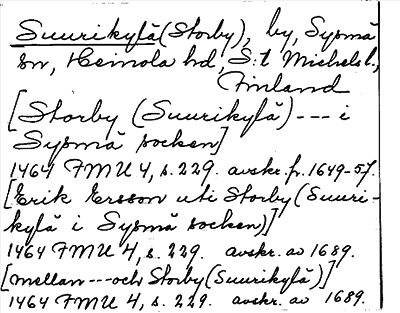 Suurikylä (Storby), by, Sysmä
sn, Heinola hd, S:t Michels l.,
Finland
[Storby (Suurikylä) --- i
Sysmä socken]
1464 FMU 4, s. 229. avskr. fr. 1649-57.
[Erik Ersson uti Storby (Suuri-
kylä i Sysmä socken)]
1464 FMU 4, s. 229. avskr. av 1689.
[mellan --- och Storby (Suurikylä)]
1464 FMU 4, s. 229. avskr. av 1689.